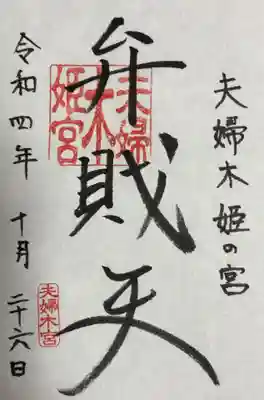 夫婦木姫の宮
弁財天
夫婦
木
姫宮
令和四年 十月 二十六日
夫婦木宮